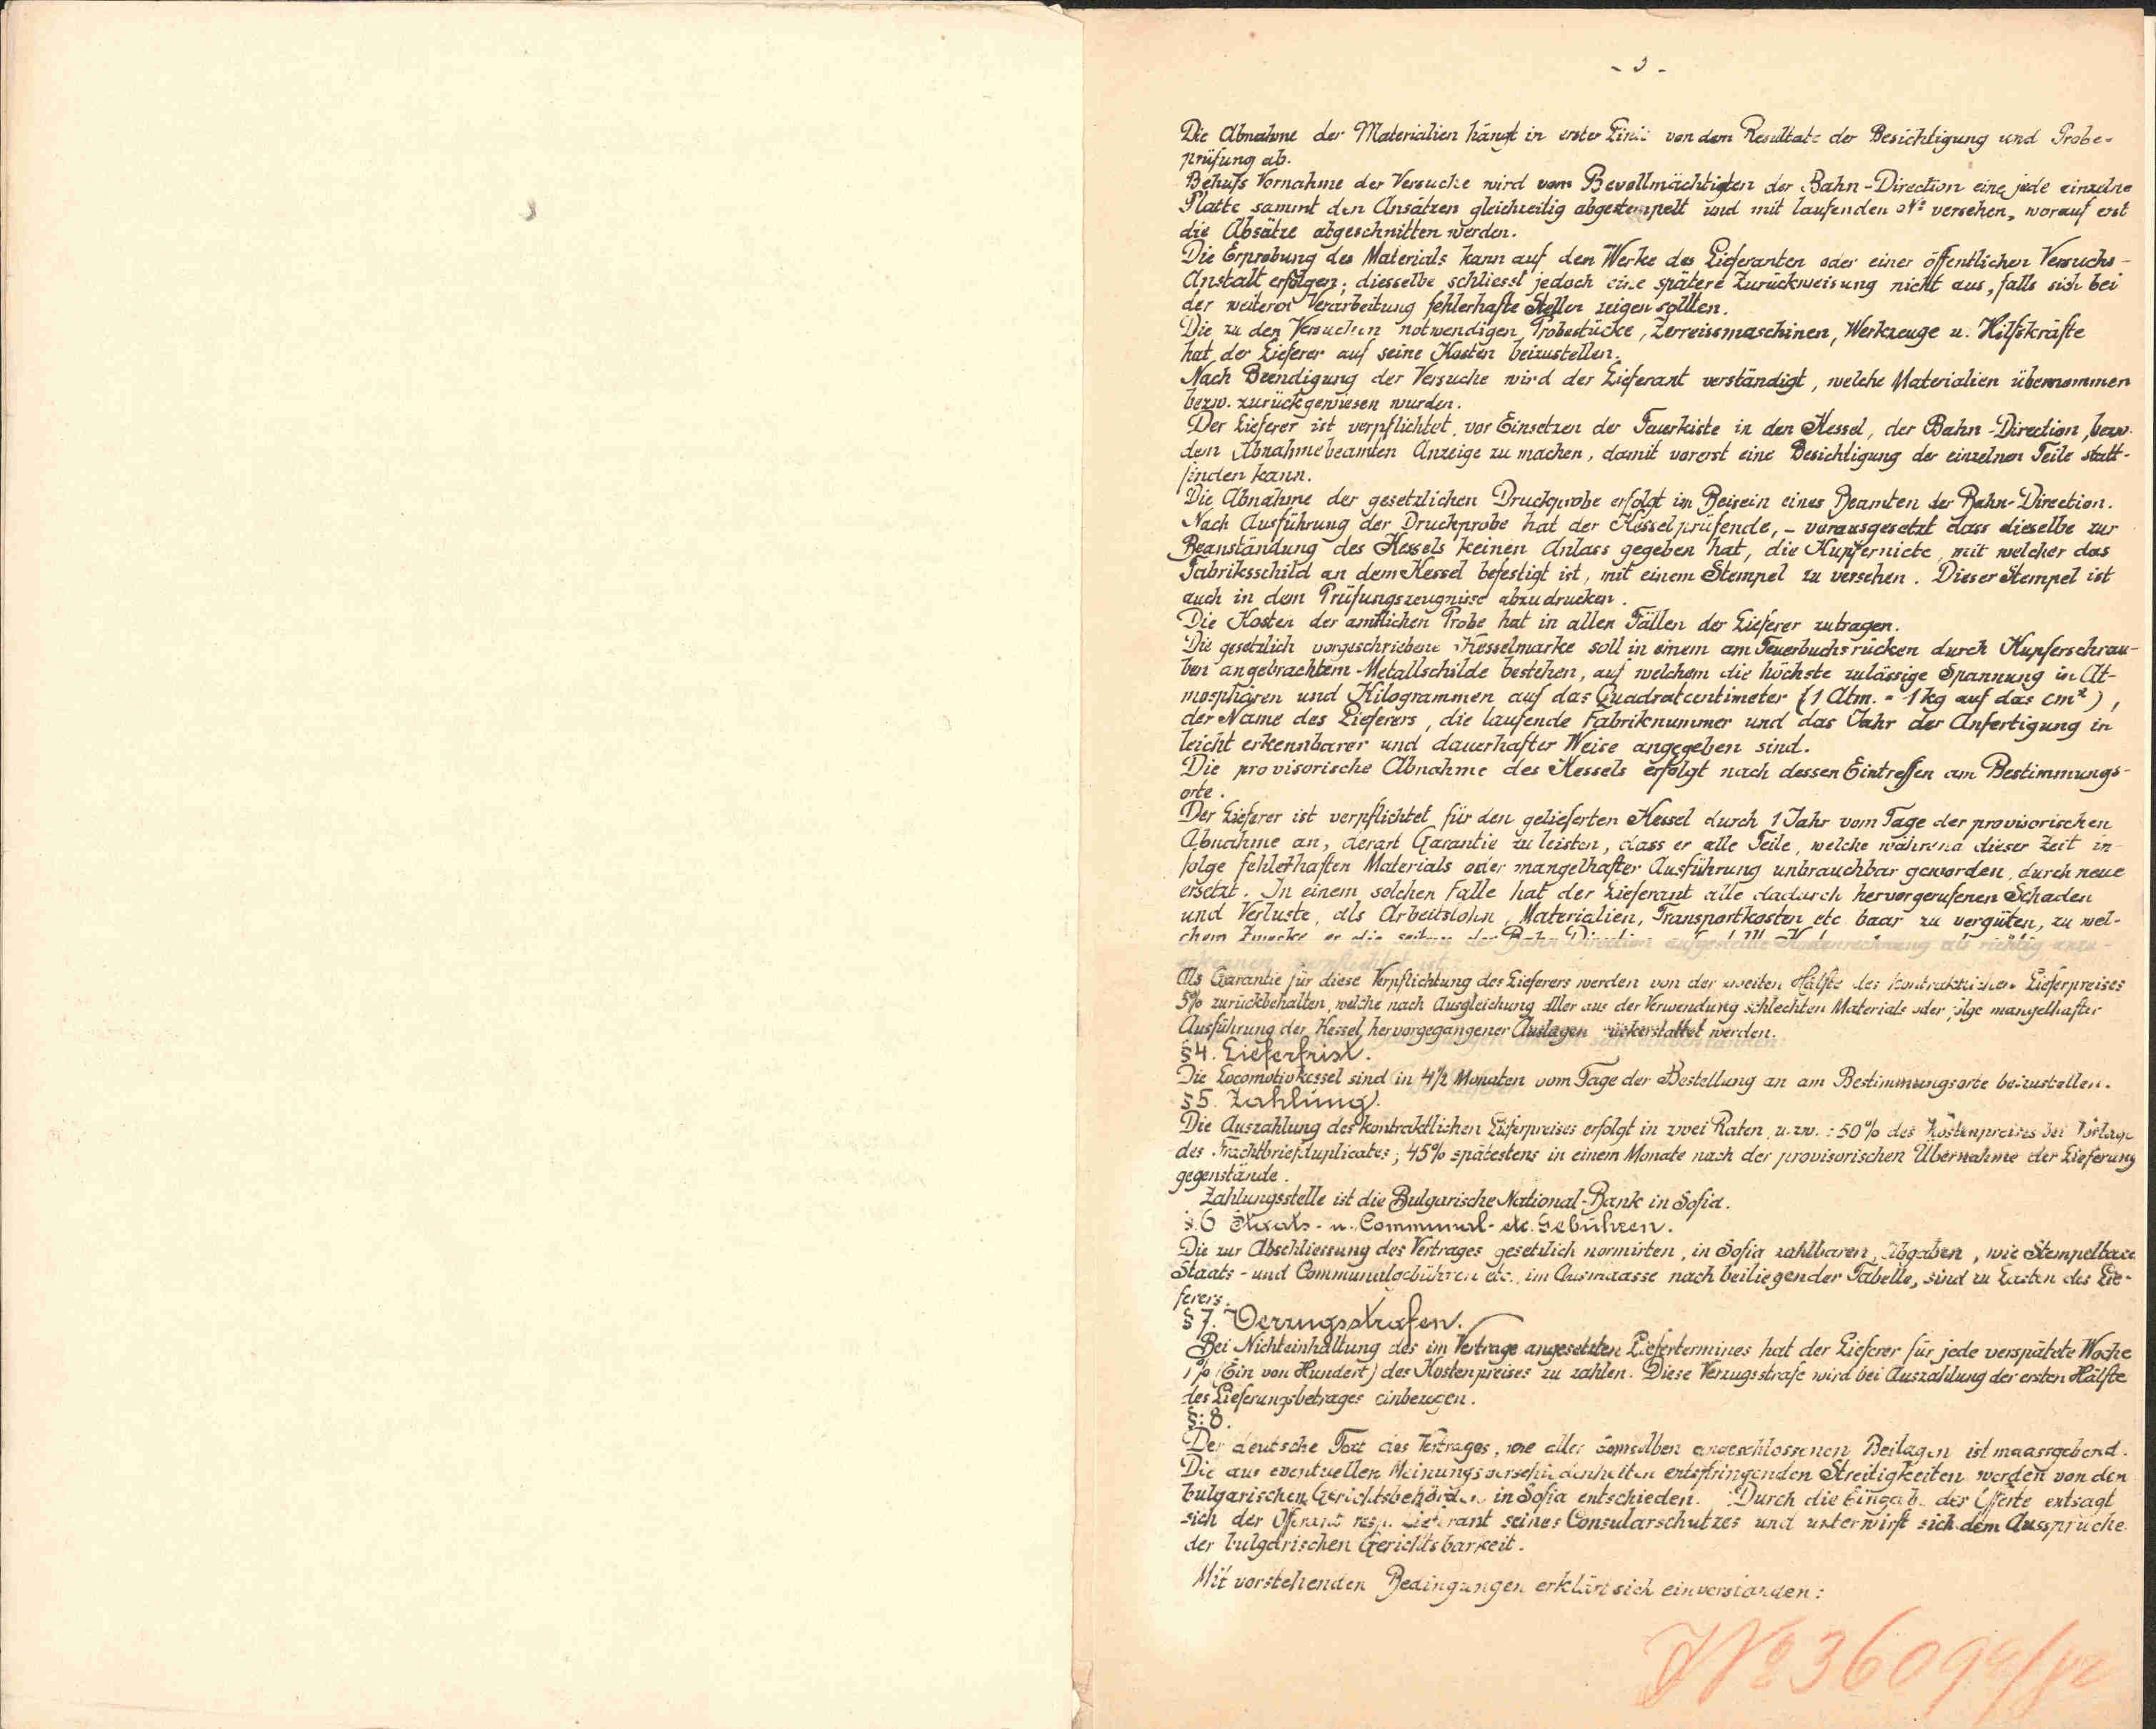 - 3 -
Die Abnahme der Materialien hängt in erster Linie von dem Resultate der Besichtigung und Probe-
prüfung ab.
Behufs Vornahme der Versuche wird vom Bevollmächtigten der Bahn-Direction eine jede einzelne
Platte sammt den Ansätzen gleichzeitig abgestempelt und mit laufenden Nº versehen, worauf erst
die Absätze abgeschnitten werden.
Die Erprobung des Materials kann auf den Werke des Lieferanten oder einer öffentlichen Versuchs-
Anstalt erfolgen; diesselbe schliesst jedoch eine spätere Zurückweisung nicht aus, falls sich bei
der weiteren Verarbeitung fehlerhafte Stellen zeigen sollten.
Die zu den Versuchen notwendigen Probestücke, Zerreissmaschinen, Werkzeuge u. Hilfskräfte
hat der Lieferer auf seine Kosten beizustellen.
Nach Beendigung der Versuche wird der Lieferant verständigt, welche Materialien übernommen
bezw. zurückgewiesen wurden.
Der Lieferer ist verpflichtet, vor Einsetzen der Feuerkiste in den Kessel, der Bahn-Direction, bezw.
dem Abnahmebeamten Anzeige zu machen, damit vorerst eine Besichtigung der einzelnen Teile statt-
finden kann.
Die Abnahme der gesetzlichen Druckprobe erfolgt im Beisein eines Beamten der Bahn-Direction.
Nach Ausführung der Druckprobe hat der Kesselprüfende, - vorausgesetzt dass dieselbe zur
Beanständung des Kessels keinen Anlass gegeben hat, die Kupferniete, mit welcher das
Fabriksschild an dem Kessel befestigt ist, mit einem Stempel zu versehen. Dieser Stempel ist
auch in dem Prüfungszeugnisse abzudrucken.
Die Kosten der amtlichen Probe hat in allen Fällen der Lieferer zutragen.
Die gesetzlich vorgeschriebene Kesselmarke soll in einem am Feuerbuchsrücken durch Kupferschrau-
ben angebrachtem Metallschilde bestehen, auf welchem die höchste zulässige Spannung in At-
mosphären und Kilogrammen auf das Quadratcentimeter (1 Atm. = 1 kg auf das cm²),
der Name des Lieferers, die laufende Fabriknummer und das Jahr der Anfertigung in
leicht erkennbarer und dauerhafter Weise angegeben sind.
Die provisorische Abnahme des Kessels erfolgt nach dessen Eintreffen am Bestimmungs-
orte.
Der Lieferer ist verpflichtet für den gelieferten Kessel durch 1 Jahr vom Tage der provisorischen
Abnahme an, derart Garantie zu leisten, dass er alle Teile, welche während dieser Zeit in-
folge fehlerhaften Materials oder mangelhafter Ausführung unbrauchbar geworden, durch neue
ersetzt. In einem solchen Falle hat der Lieferant alle dadurch hervorgerufenen Schaden
und Verluste, als Arbeitslohn, Materialien, Transportkosten etc baar zu vergüten, zu wel-
chem Zwecke er die seitens der Bahn Direction aufgestellte Kostenrechnung als richtig anzu-
erkennen verpflichtet ist.
Als Garantie für diese Verpflichtung des Lieferers werden von der zweiten Hälfte des kontraktlichen Lieferpreises
5% zurückbehalten, welche nach Ausgleichung aller aus der Verwendung schlechten Materials oder folge mangelhafter
Ausführung der Kessel hervorgegangener Auslagen rückerstattet werden.
§4. Lieferfrist.
Die Locomotivkessel sind in 4½ Monaten vom Tage der Bestellung an am Bestimmungsorte beizustellen.
§5. Zahlung.
Die Auszahlung des kontraktlichen Lieferpreises erfolgt in zwei Raten, u. zw.: 50% des Kostenpreises bei Vorlage
des Frachtbriefduplicates; 45% spätestens in einem Monate nach der provisorischen Übernahme der Lieferung
gegenstände.
Zahlungsstelle ist die Bulgarische National-Bank in Sofia.
§.6 Staats- u. Communal- etc. Gebühren.
Die zur Abschliessung des Vertrages gesetzlich normirten, in Sofia zahlbaren Abgaben, wie Stempeltaxe
Staats- und Communalgebühren etc., im Ausmaasse nach beiliegender Tabelle, sind zu Lasten des Lie-
ferers.
§7. Verzugsstrafen.
Bei Nichteinhaltung des im Vertrage angesetzten Liefertermines hat der Lieferer für jede verspätete Woche
1% (Ein von Hundert) des Kostenpreises zu zahlen. Diese Verzugsstrafe wird bei Auszahlung der ersten Hälfte
des Lieferungsbetrages einbezogen.
§:8.
Der deutsche Text des Vertrages, wie aller demselben angeschlossenen Beilagen ist maassgebend.
Die aus eventuellen Meinungsverschiedenheiten entspringenden Streitigkeiten werden von den
bulgarischen Gerichtsbehörden in Sofia entschieden. Durch die Eingabe der Offerte entsagt
sich der Offerent resp. Lieferant seines Consularschutzes und unterwirft sich dem Ausspruche
der bulgarischen Gerichtsbarkeit.
Mit vorstehenden Bedingungen erklärt sich einverstanden:
Nº 3609